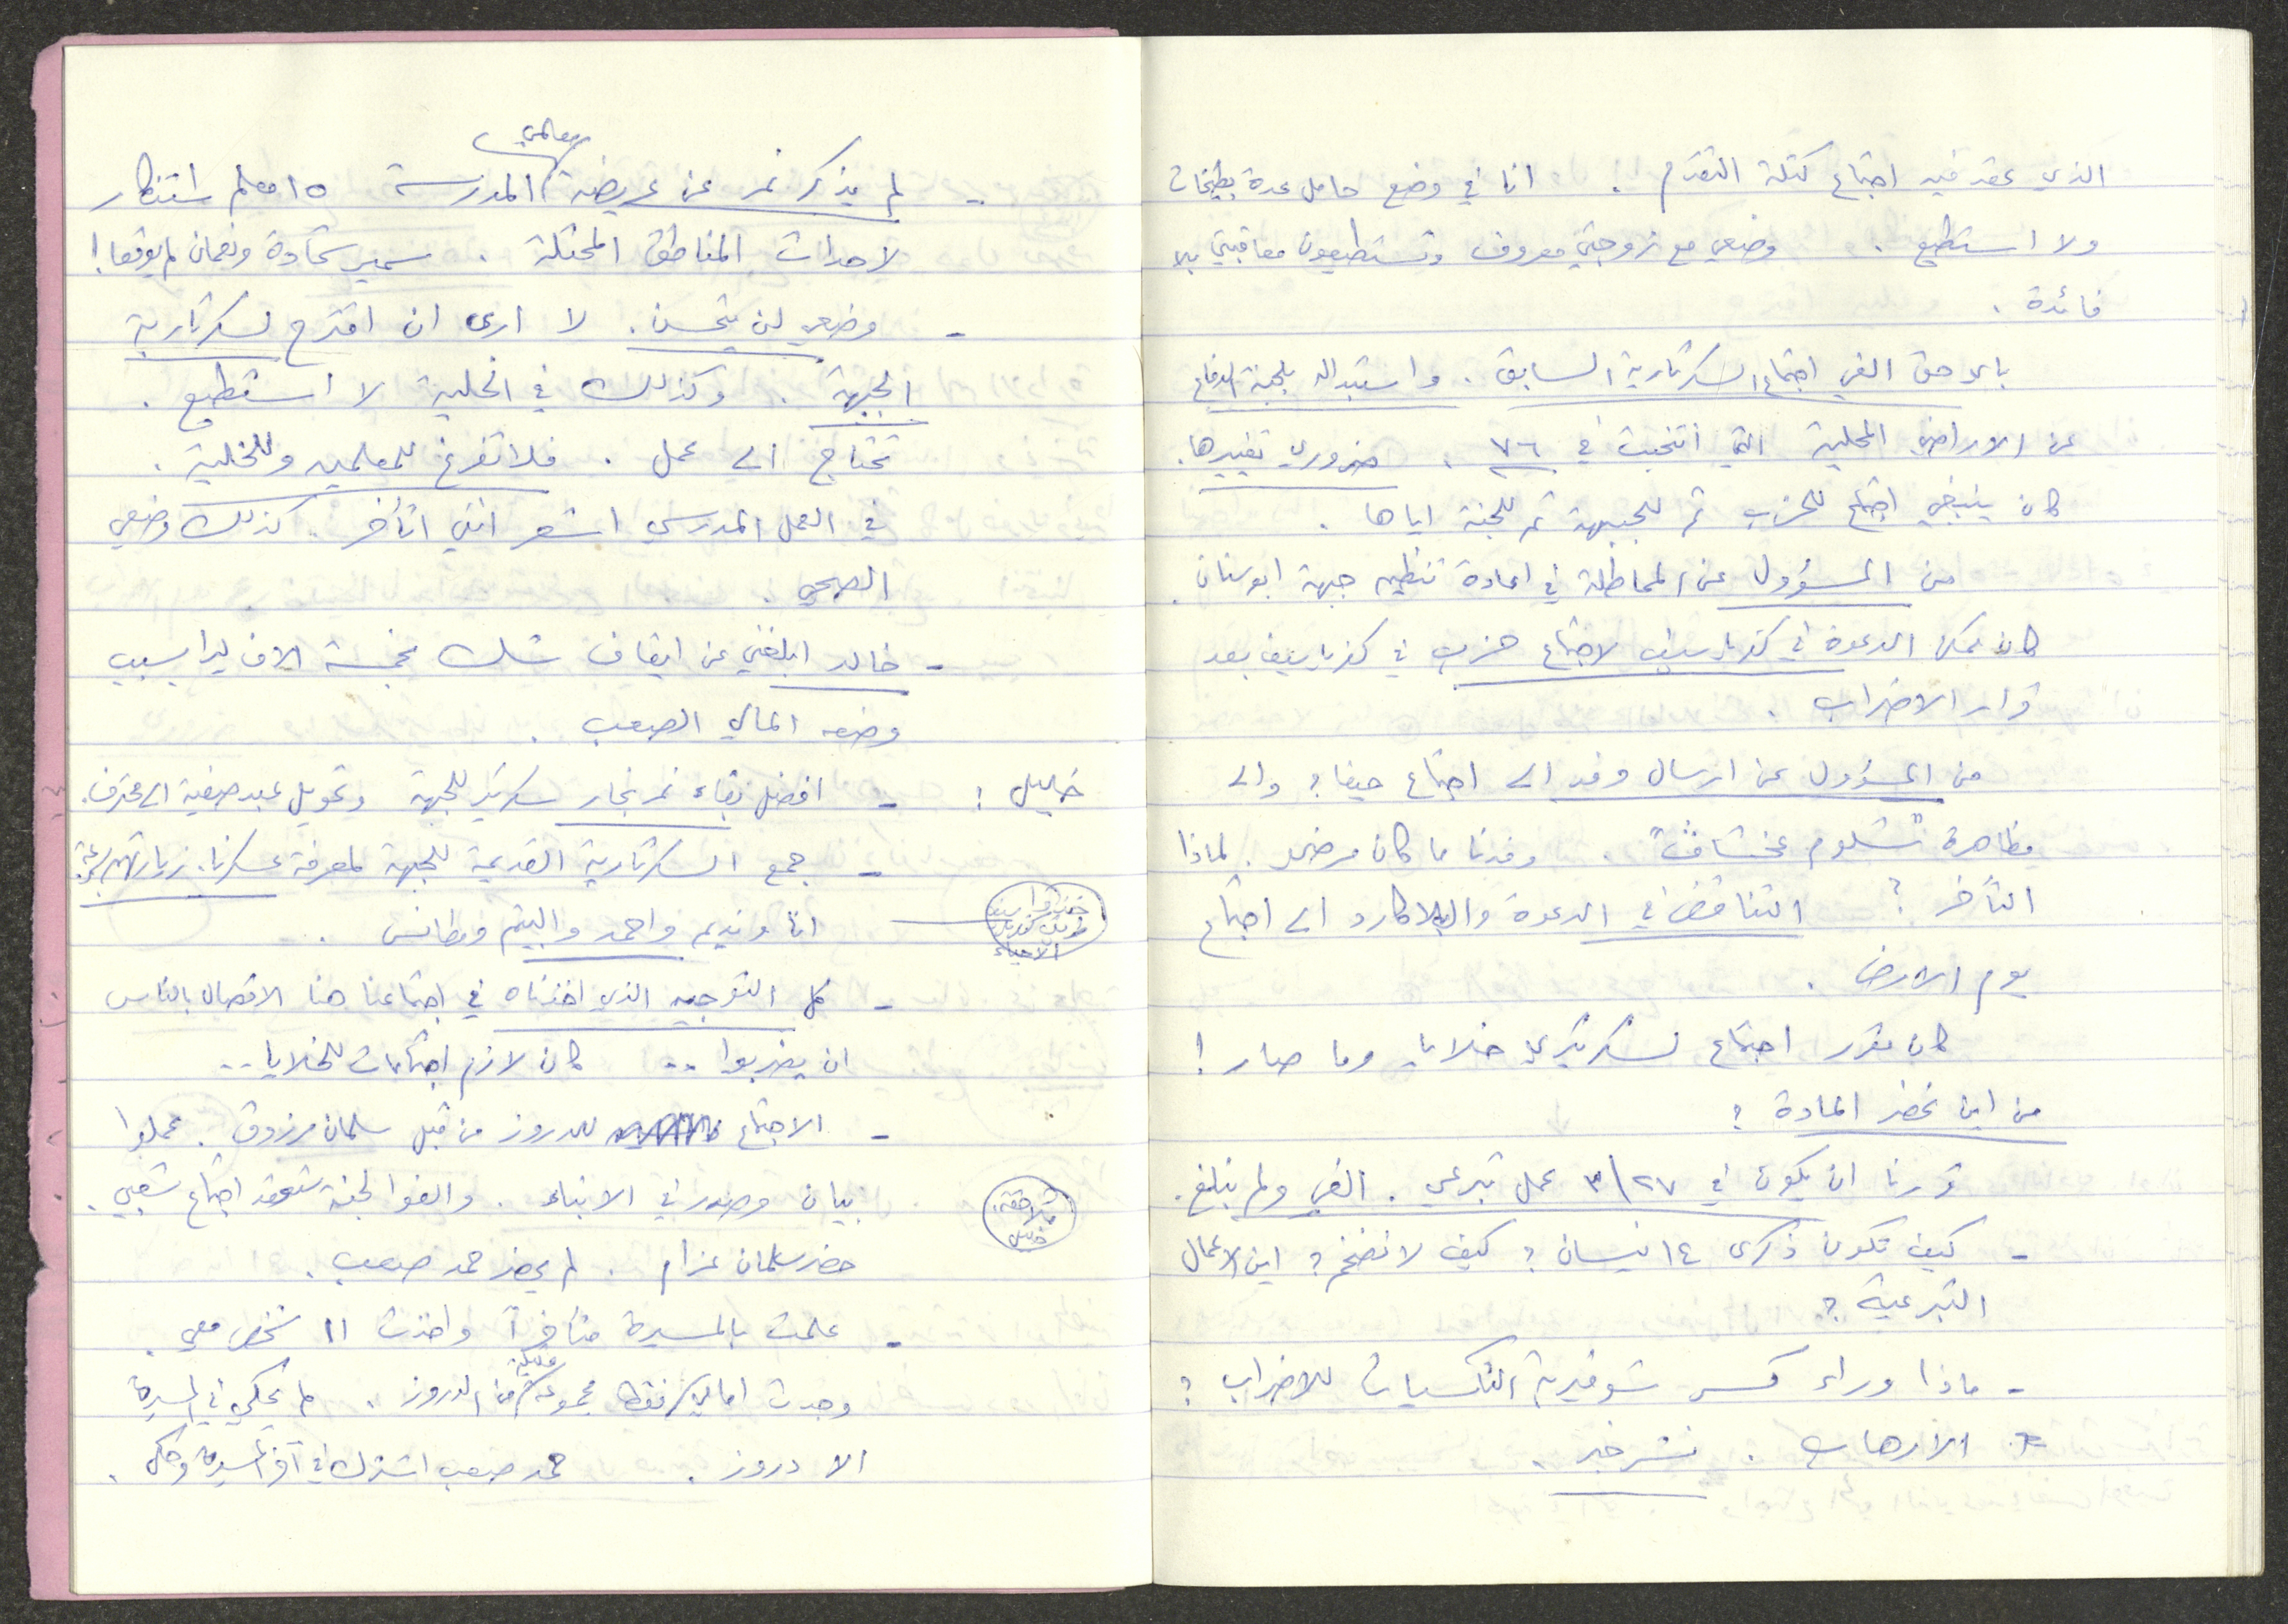 الذي عقد فيه اجتماع كتلة التقدم . انا في وضع حامل عدة بطيخات
ولا استطيع . وضعي مع زوجتي معروف وتستطيعون معاقبتي بلا
فائدة .
باي حق الغي اجتماع السكرتارية السابق . واستبداله بلجنة الدفاع
عن الاراضي المحلية التي انتخبت في ٧٦ . ضروري تغييرها .
كان ينبغي اجتماع للحزب ثم للجبهة ثم للجنة اياها .
من المسؤول عن المماطلة في اعادة تنظيم جبهة ابوسنان .
كان ممكن الدعوة في كفرياسيف لاجتماع حزبي في كفرياسيف بعد
قرار الاضراب .
من المسؤول عن ارسال وفد الى اجتماع حيفا ؟ والى
مظاهرة "شلوم عخشاف" . وفدنا ما كان مرضي . لماذا
التأخر ؟ التناقض في الدعوة والبلاكارد الى اجتماع
يوم الارض .
كان مقرر اجتماع لسكرتيري خلايا وما صار !
من اين نحضر المادة ؟
قررنا ان يكون في ٢٧/٣ عمل تبرعي . الغي ولم نبلغ .
- كيف تكون ذكرى ١٤ نيسان ؟ كيف لا نضخم ؟ اين الاعمال
التبرعية ؟
- ماذا وراء كسر شوفيرية التاكسيات للاضراب ؟
* الارهاب . نشر خبر .
- لم يذكر نمر عن عريضة معلمي المدرسة ١٥ معلم استنكار
لاحداث المناطق المحتلة . سمير شحادة ونعمان لم يوقعا !
- وضعي لن يتحسن . لا ارى ان اقترح لسكرتارية
الجبهة . وكذلك في الخلية لا استطيع .
تحتاج الى عمل . فلا تفرغ للمعلمين وللخلية .
في العمل المدرسي اشعر انني اتأخر . كذلك وضعي
الصحي .
- خالد ابلغني عن ايقاف شك بخمسة الاف ليرا بسبب
وضعه المالي الصعب .
خليل : - افضل بقاء نمر نجار سكرتير للجبهة وتحويل عبد صفية الى محترف .
- جمع السكرتارية القديمة للجبهة لمعرفة عسكرنا . زيارتهم
انا ونديم واحمد واليتم وطانس .
الاحياء
- كل التوجيه الذي اخذناه في اجتماعنا هنا الاتصال بالناس
ان يضربوا .. كان لازم اجتماعات للخلايا ..
- الاجتماع للدروز من قبل سلمان مرزوق . عملوا
بيان وصدر في الانباء . والفوا لجنة ستعقد اجتماع شعبي .
ملاحقة :
خليل
حضر سلمان عزام . لم يحضر حمد صعب .
- علمت بالمسيرة متأخراً واخذت ١١ شخص معي .
وجدت امامي فقط مجموعة قليلة من الدروز . لم يحكي في المسيرة
الا دروز . حمد صعب اشترك في آخر المسيرة وحكى .